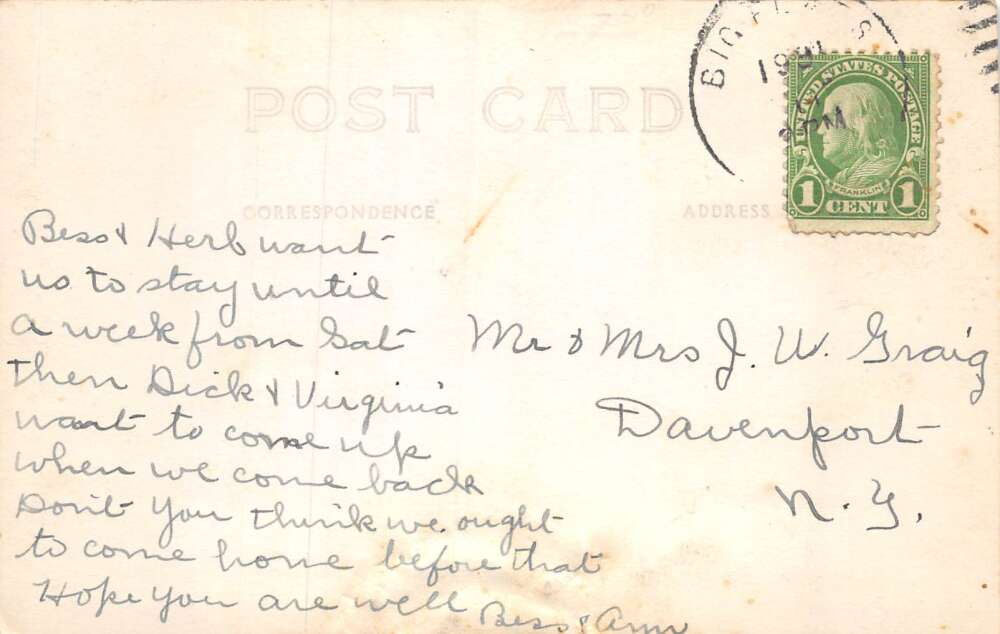 POST CARD
CORRESPONDENCE
ADDRESS
BIG
PM
UNITED STATES POSTAGE
FRANKLIN
1 CENT 1
Bess & Herb want
us to stay until
a week from Sat
then Dick & Virginia
want to come up
when we come back
Don't you think we ought
to come home before that
Hope you are well
Bess & Ann
Mr & Mrs J. W. Graig
Davenport
N. Y.